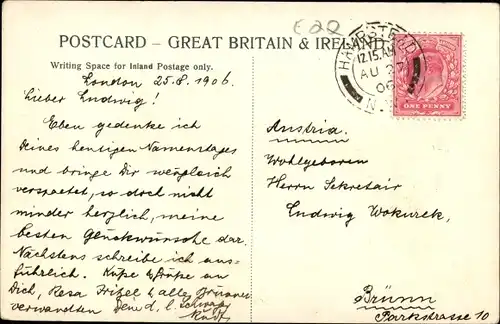 E20
POSTCARD – GREAT BRITAIN & IRELAND.
Writing Space for Inland Postage only.
HAMPSTEAD
12.15.AM
AU
06
N.W.
ONE PENNY
London 25.8.1906.
Lieber Ludwig!
Eben gedenke ich
Deines heutigen Namenstages
und bringe Dir wenngleich
verspaetet, so doch nicht
minder herzlich, meine
besten Glückwünsche dar.
Nächstens schreibe ich aus-
führlich. Küsse & Grüsse an
Dich, Resa & alle Brünner
verwandten Dein d. l.
Austria.
Wohlgeboren
Herrn Sekretair
Ludwig Wokurek,
Brünn
Parkstrasse 10